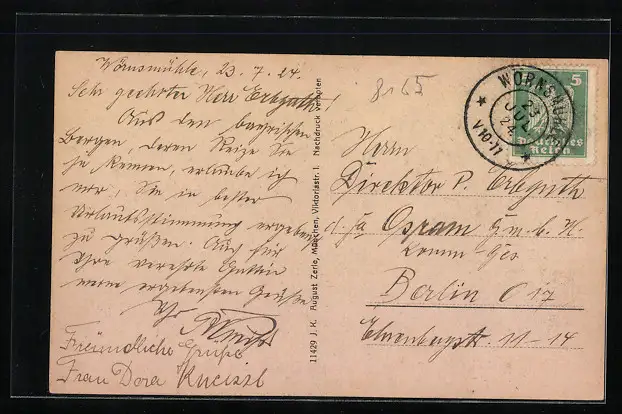 Wörnsmühle, 23. 7. 24.
Sehr geehrter Herr Erbguth!
Aus den bayrischen
Bergen, deren Reize Sie
ja kennen, erlaube ich
mir, Sie in bester
Urlaubsstimmung ergebenst
zu grüßen. Auch für
Ihre verehrte Gattin
meine ergebensten Grüße
Ihr
Freundliche Grüße
Frau Dora Kneissl
11429 J. K. August Zerle, München, Viktoriastr. 1. Nachdruck verboten
8165
WÖRNSMÜHLE
23
JUL
24
V 10-11
5
Deutsches
Reich
Herrn
Direktor P. Erbguth
d. fa Osram G.m.b.H.
Komm-Ges
Berlin O 17
Ehrenbergstr. 11-14